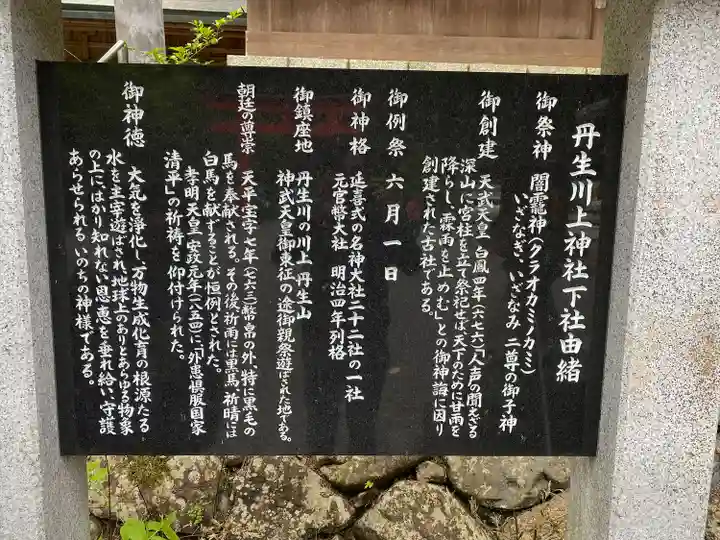 丹生川上神社下社由緒
御祭神 闇龗神(クラオカミノカミ)
いざなぎ、いざなみ 二尊の御子神
御創建 天武天皇 白鳳四年(六七六)「人声の聞えざる
深山に宮柱を立て祭祀せば、天下のために甘雨を
降らし、霖雨を止めむ」との御神誨に因り
創建された古社である。
御例祭 六月一日
御神格 延喜式の名神大社二十二社の一社
元官幣大社 明治四年列格
御鎮座地 丹生川の川上 丹生山
神武天皇御東征の途御親祭遊ばされた地である。
朝廷の尊崇 天平宝字七年(七六三)幣帛の外、特に黒毛の
馬を奉献される。その後祈雨には黒馬、祈晴には
白馬を献ずることが恒例とされた。
孝明天皇 安政元年(一八五四)に、「外患惧服国家
清平」の祈祷を仰付けられた。
御神徳 大気を浄化し、万物生成化育の根源たる
水を主宰遊ばされ、地球上のありとあらゆる物象
の上にはかり知れない恩恵を垂れ給い、守護
あらせられる いのちの神様である。